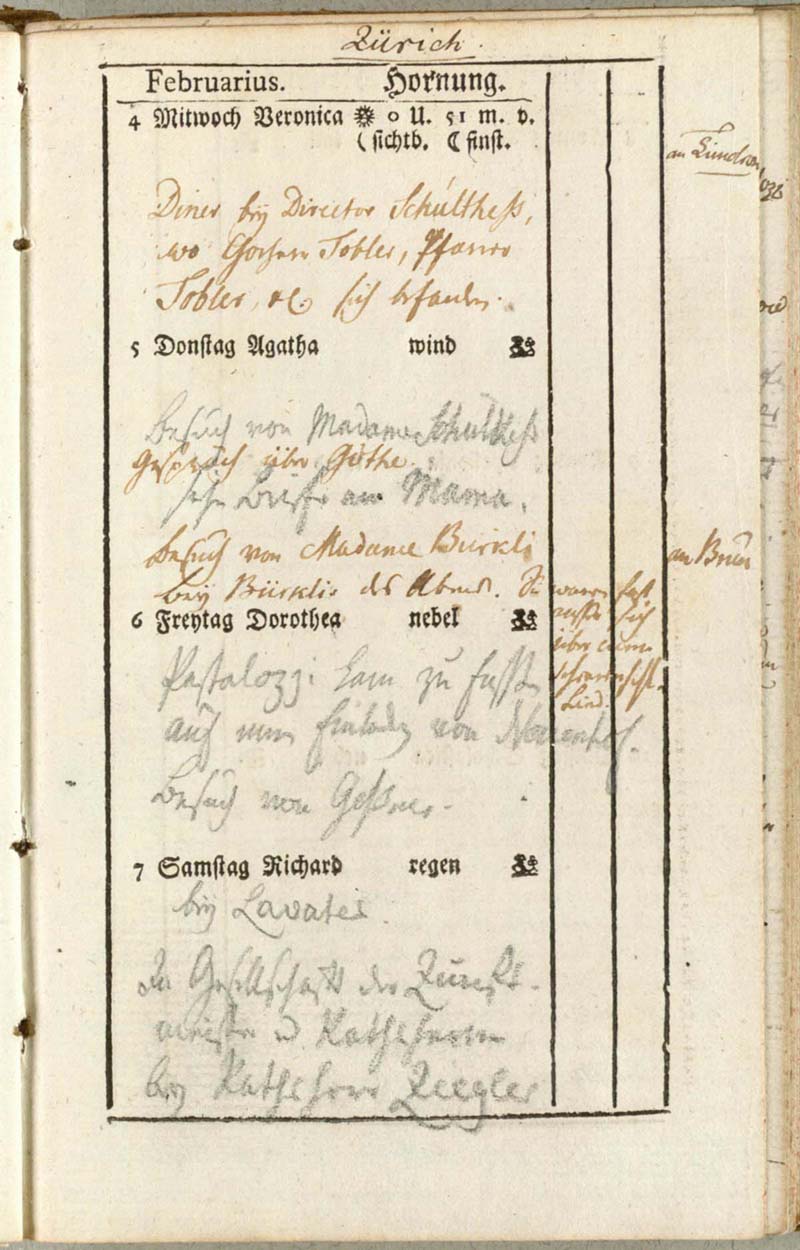 Zürich.
Februarius. Hornung.
4 Mitwoch Veronica o U. 51 m. v.
sichtb. finst.
an
Diner bey Director Schultheß,
wo Tobler, Pfarrer
Tobler, etc. sich befanden.
5 Donstag Agatha wind
Besuch von Madame Schultheß
Gespräch über Göthe.
Briefe an Mama.
Besuch von Madame Bürkli
an Brun
bey Bürklis des Abends. Sie waren fast
sich
über einen
6 Freytag Dorothea nebel
Pestalozzi kam zu
auf von
Besuch von Geßner.
7 Samstag Richard regen
bey Lavater.
In Gesellschaft der Zunft-
meister u Rathsherrn
bey Rathsherr Ziegler